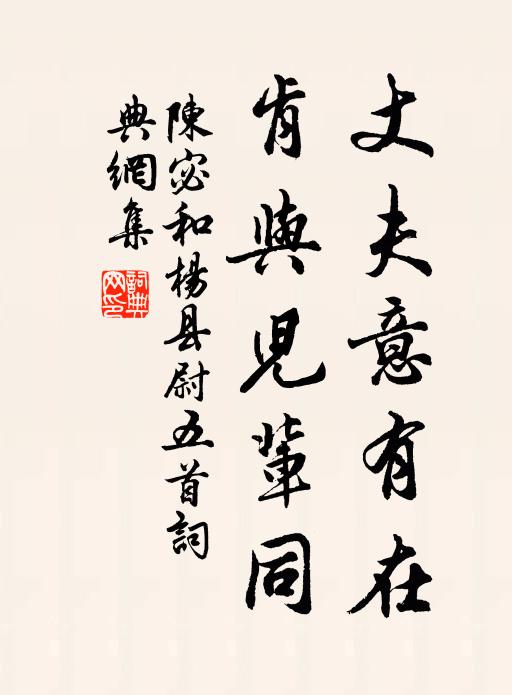 丈夫意有在
肯與児輩同
陳宓和楊县尉五首詞
典網集
詞典
网印